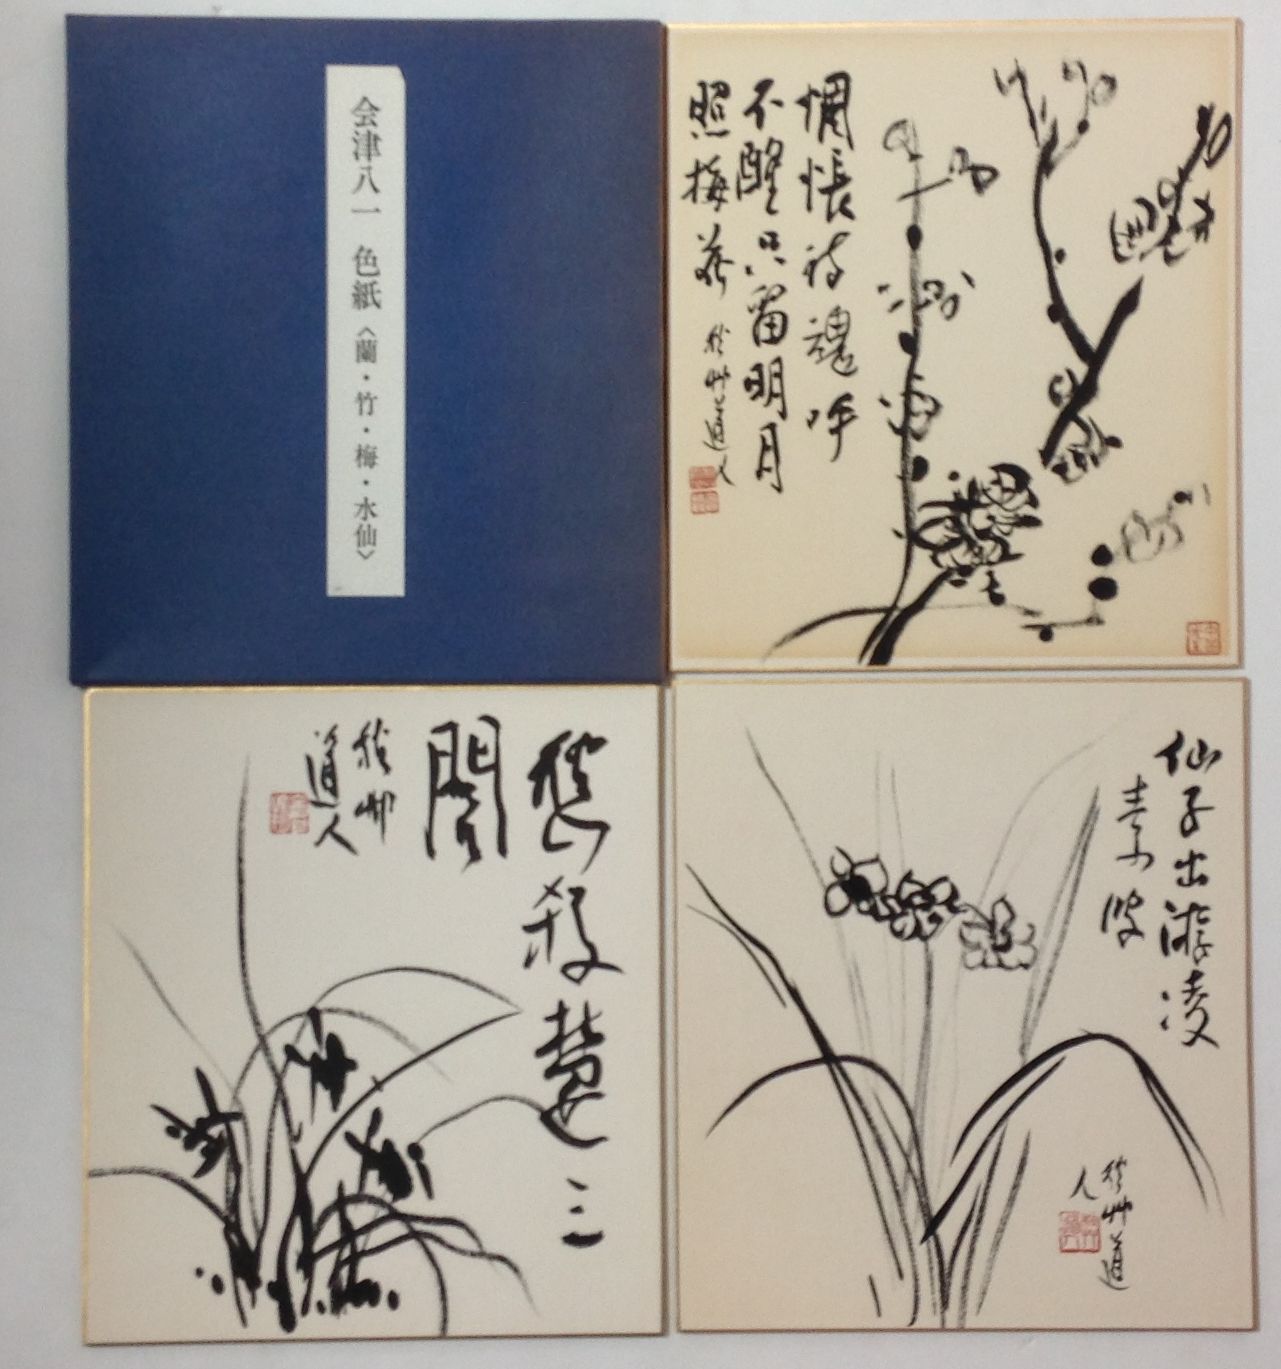 会津八一 色紙〈蘭・竹・梅・水仙〉
惆悵詩魂呼
不醒只留明月
照梅花
秋艸道人
愁殺楚三
閭
秋艸
道人
仙子出游凌
素波
秋艸道
人